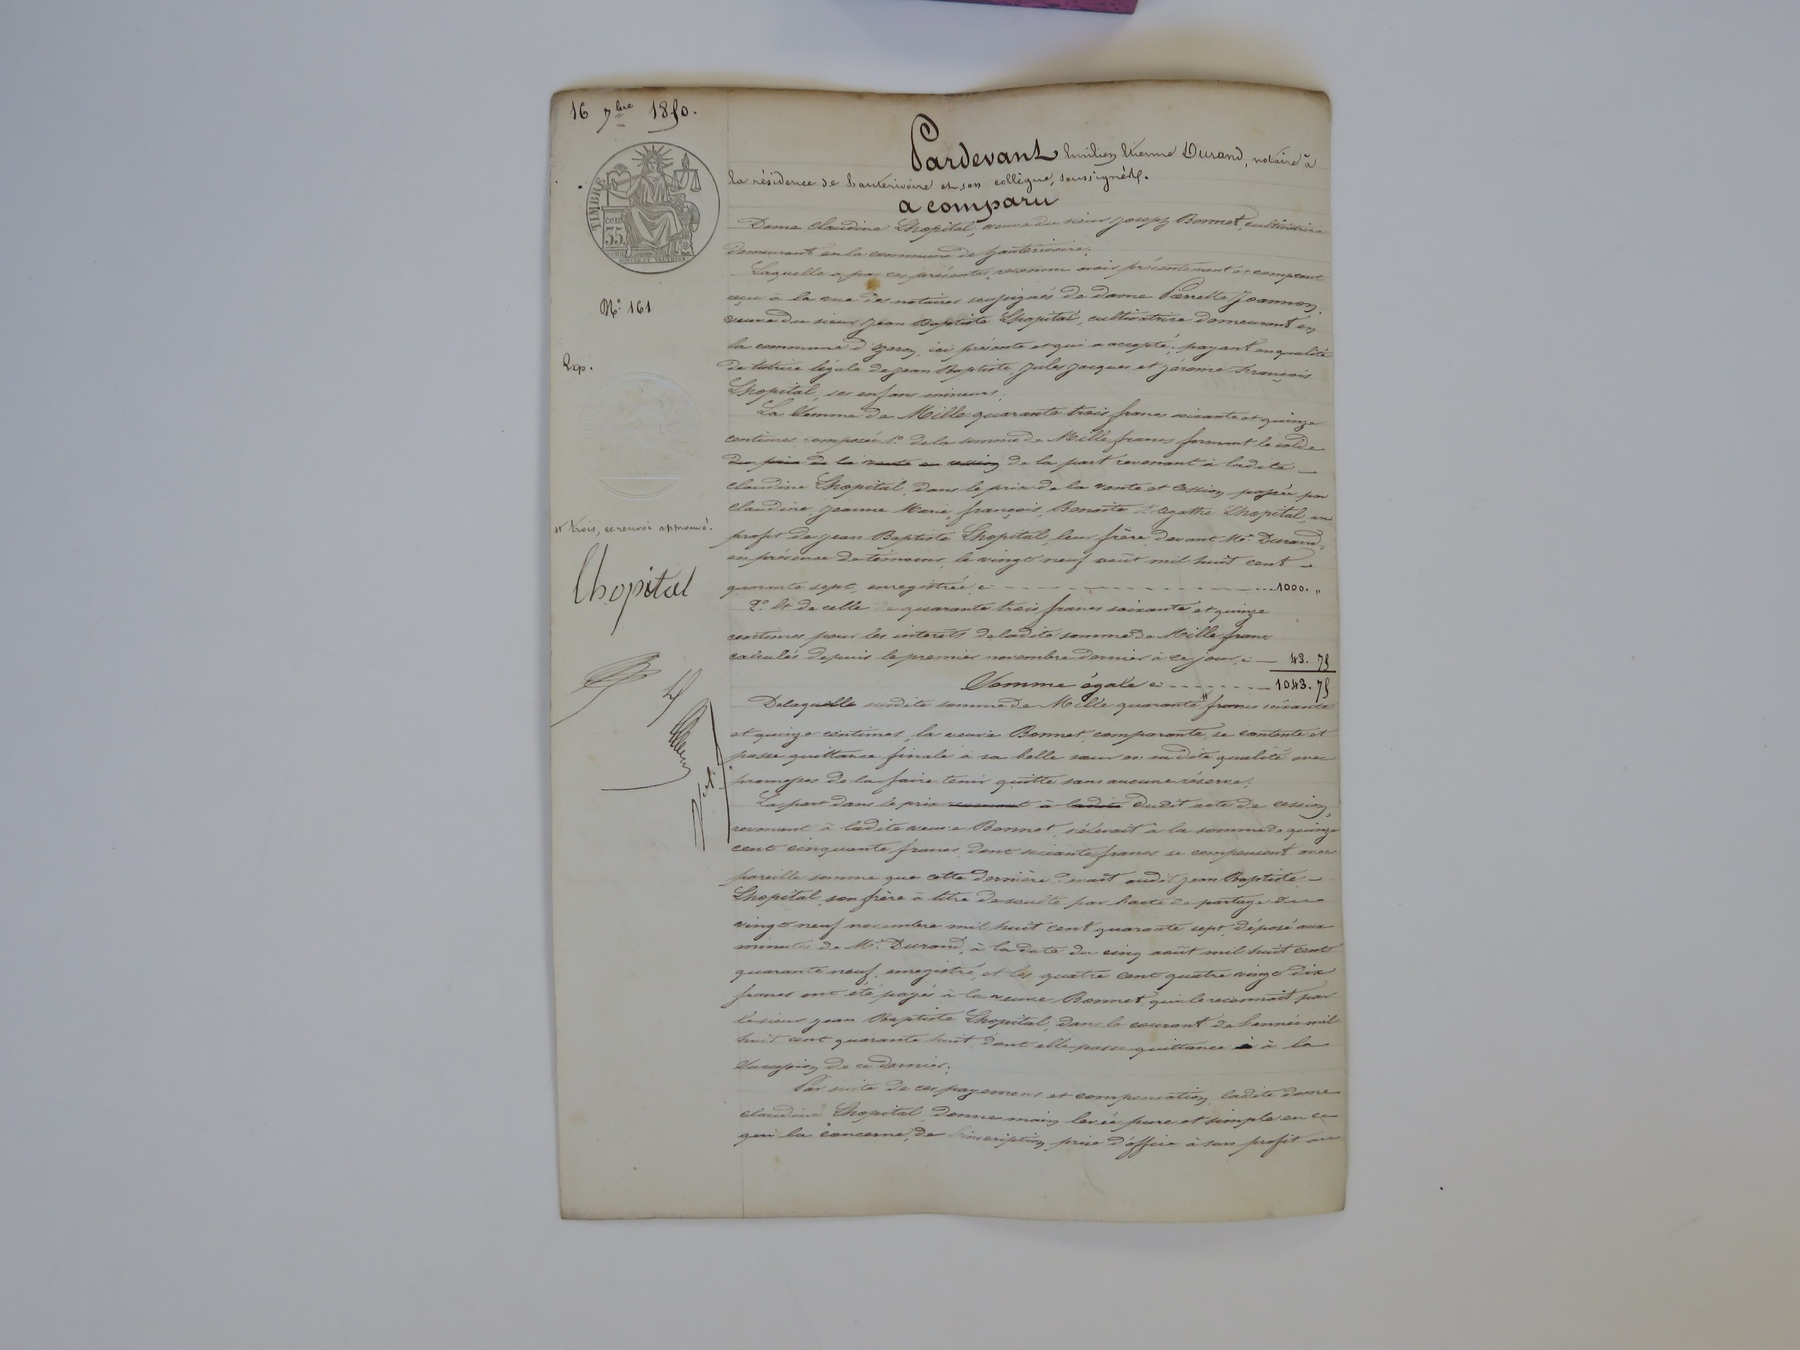 16 7bre 1850.
TIMBRE
cen
35
Nº 161
Exp.
# trois, ce renvoi approuvé.
Lhopital
Pardevant Emilien Etienne Durand, notaire à
la résidence de hauterivoire et son collègue, soussignés.
a comparu
Dame Claudine Lhopital, veuve du sieur Joseph Bonnet, cultivatrice
demeurant en la commune de hauterivoire;
Laquelle a, par ces présentes, reconnu avoir présentement et comptant
reçu à la vue des notaires soussignés de dame Pierrette Jeannon,
veuve du sieur Jean Baptiste Lhopital, cultivatrice demeurant en
la commune d'yzeron, ici présente et qui a accepté; payant en qualité
de tutrice légale de Jean Baptiste, Jules Jacques et Jérome François
Lhopital, ses enfans mineurs;
La Somme de Mille quarante trois francs soixante et quinze
centimes composée 1º de la somme de Mille francs formant le solde
du prix de la vente en cession de la part revenant à ladite
Claudine Lhopital, dans le prix de la vente et Cession passée par
Claudine, Jeanne Marie, françois, Benoite & Agathe Lhopital, au
profit de Jean Baptiste Lhopital, leur frère, devant Me Durand,
en présence de témoins, le vingt neuf août mil huit cent
quarante sept, enregistrée, ci 1000. "
2º Et de celle de quarante trois francs soixante et quinze
centimes pour les intérêts de ladite somme de Mille francs
calculés depuis le premier novembre dernier à ce jour, ci 43. 75
Somme égale ci 1043. 75
De laquelle susdite somme de Mille quarante # francs soixante
et quinze centimes, la veuve Bonnet, comparante, se contente et
passe quittance finale à sa belle sœur en sa dite qualité avec
promesses de la faire tenir quitte sans aucune réserve;
La part dans le prix revenant à ladite dudit acte de cession,
revenant à ladite veuve Bonnet, s'élevait à la somme de quinze
cent cinquante francs dont soixante francs se compensent avec
pareille somme que cette dernière devait audit Jean Baptiste
Lhopital, son frère à titre de soulte par l'acte de partage du
vingt neuf novembre mil huit cent quarante sept, déposé aux
minutes de Me Durand, à la date du cinq août mil huit cent
quarante neuf, enregistré, et les quatre cent quatre vingt dix
francs ont été payés à la veuve Bonnet, qui le reconnait par
le sieur Jean Baptiste Lhopital, dans le courant de l'année mil
huit cent quarante huit, dont elle passe quittance à la
Succession de ce dernier;
Par suite de ces payemens et compensation, ladite dame
Claudine Lhopital donne main levée pure et simple en ce
qui la concerne, de l'inscription prise d'office à son profit au